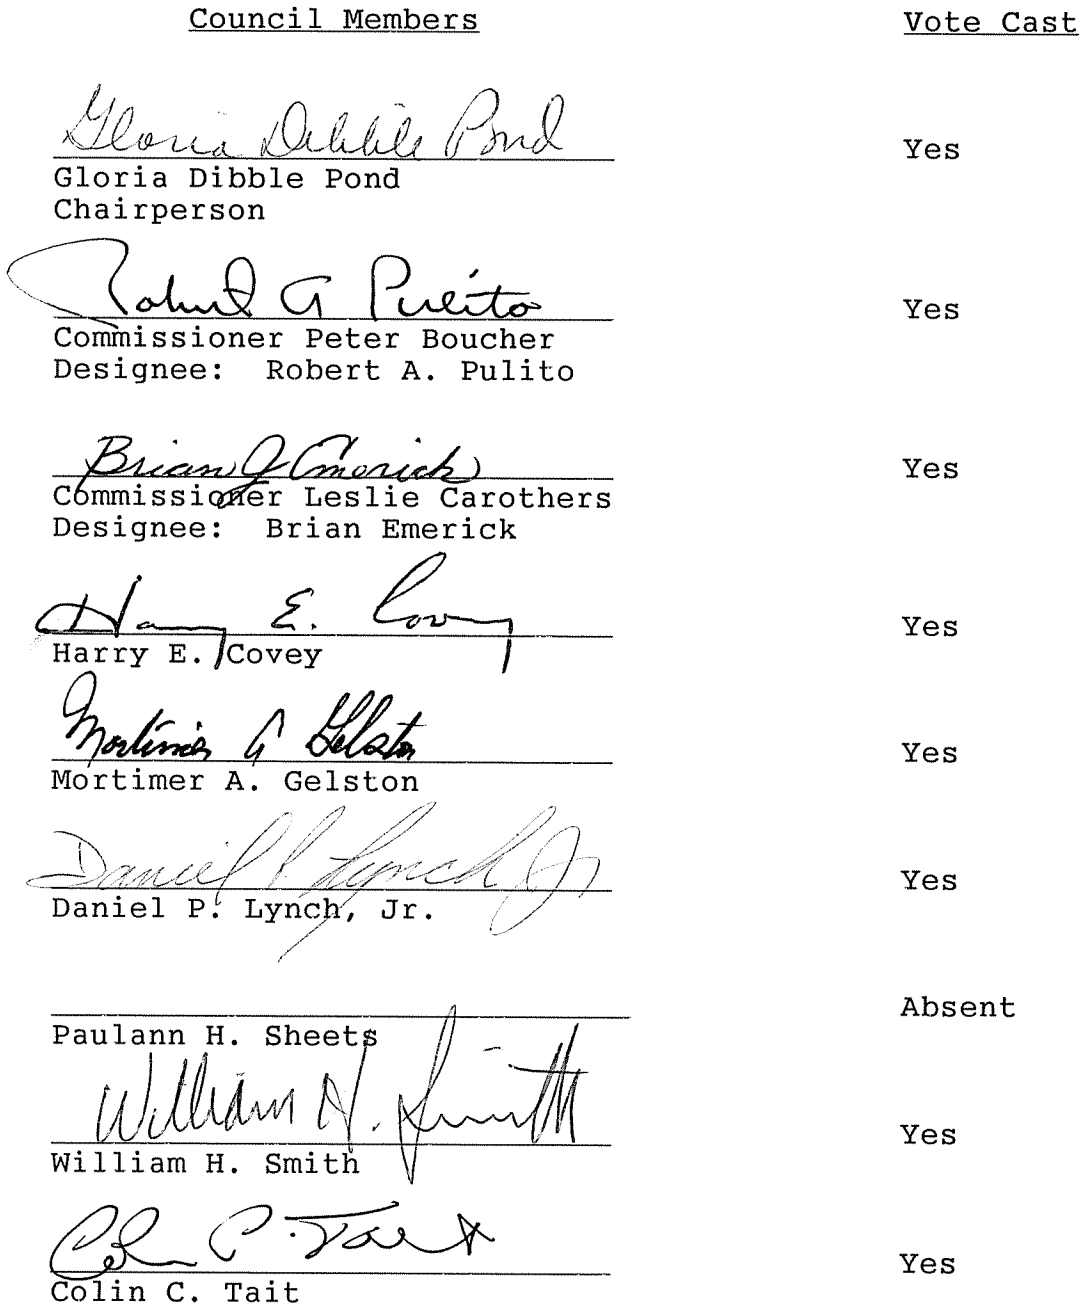 Council Members Vote Cast
Gloria Dibble Pond Yes
Gloria Dibble Pond
Chairperson
Robert A Pulito Yes
Commissioner Peter Boucher
Designee: Robert A. Pulito
Brian J Emerick Yes
Commissioner Leslie Carothers
Designee: Brian Emerick
Harry E. Covey Yes
Harry E. Covey
Mortimer A Gelston Yes
Mortimer A. Gelston
Daniel P Lynch Jr Yes
Daniel P. Lynch, Jr.
Absent
Paulann H. Sheets
William H. Smith Yes
William H. Smith
Colin C. Tait Yes
Colin C. Tait